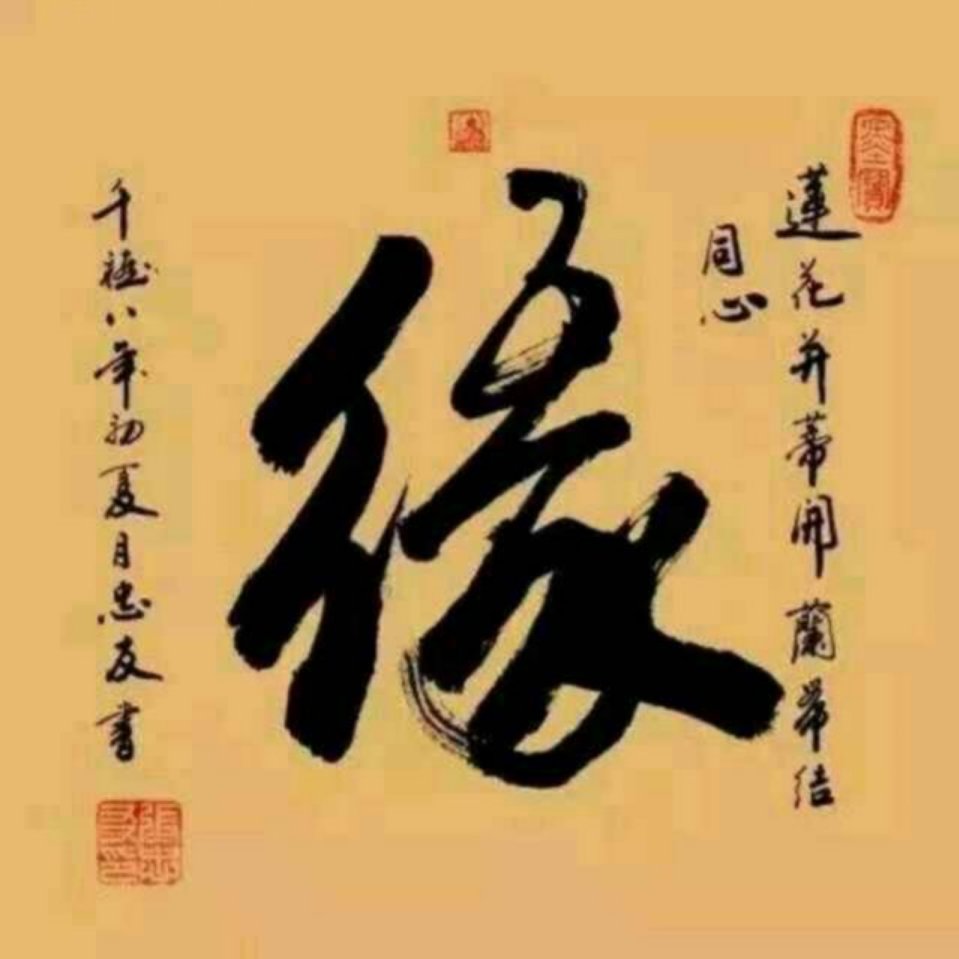 蓮花并蒂開蘭帶結
同心
緣
千禧八年初夏月忠友書